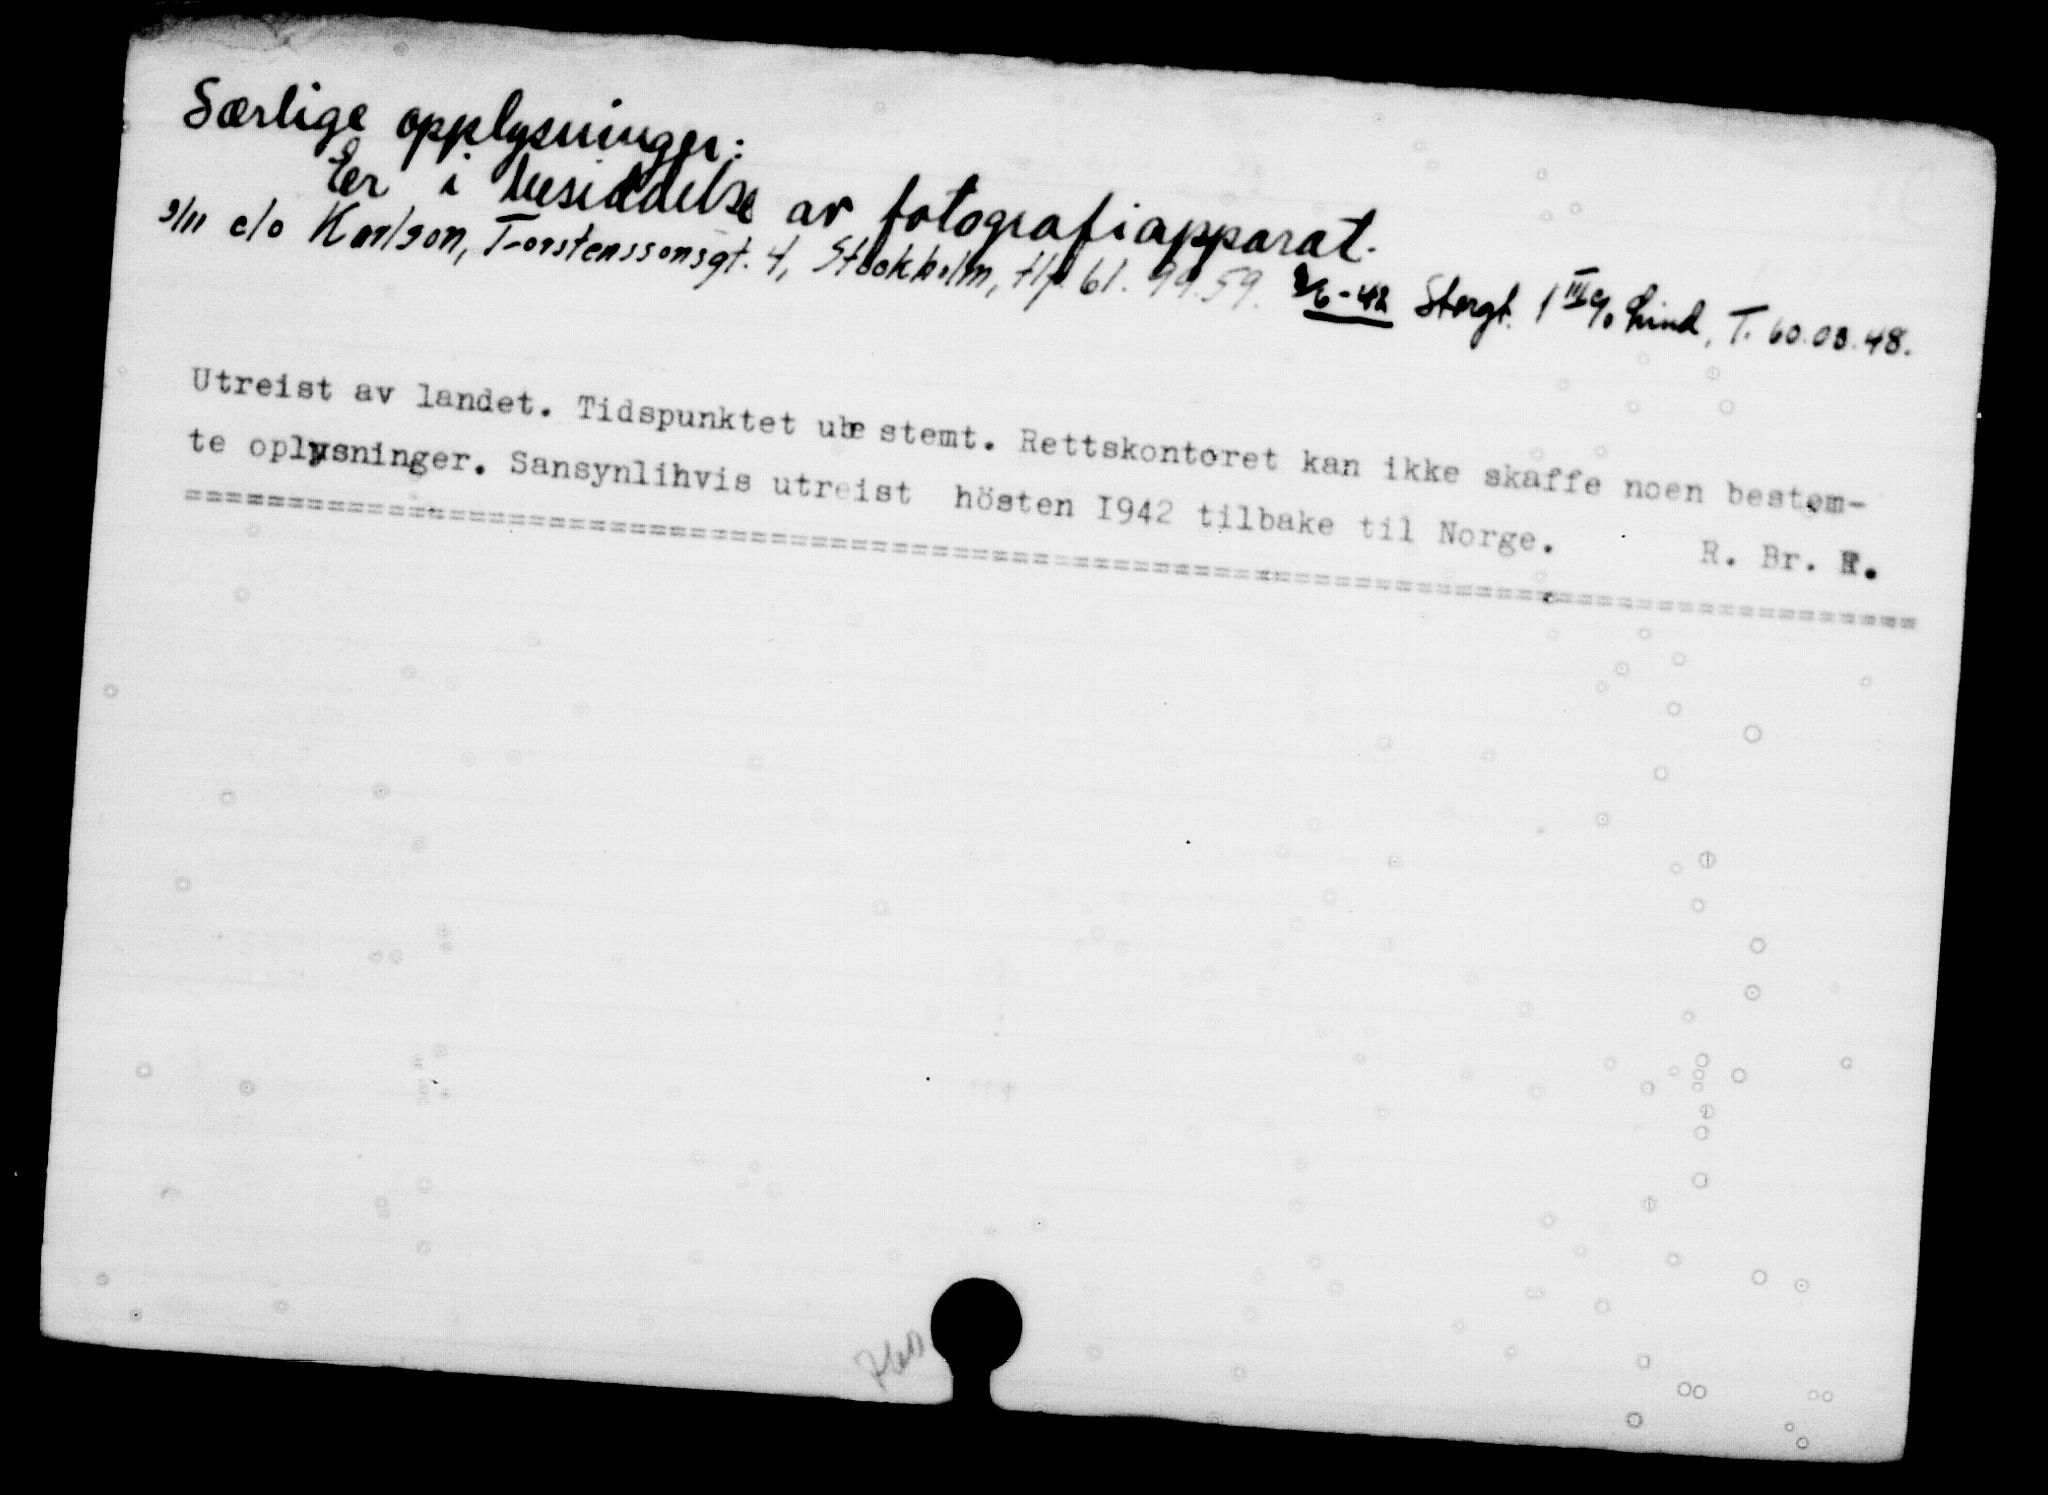 Særlige opplysninger:
Er i besiddelse av fotografiapparat.
9/11 c/o Karlson, Torstenssonsgt. 4, Stockholm, tlf. 61.99.59. 2/6-42 Storgt. 1 III c/o Lind, T. 60.03.48.
Utreist av landet. Tidspunktet ube stemt. Rettskontoret kan ikke skaffe noen bestem-
te oplysninger. Sansynlihvis utreist hösten I942 tilbake til Norge. R. Br. F.
=====================================================================================